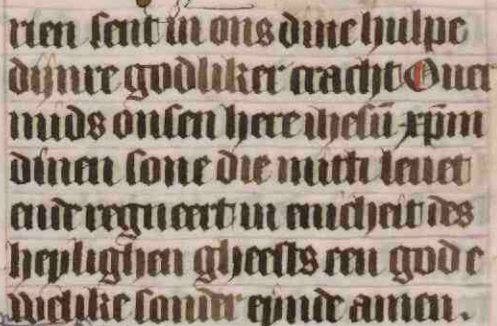 rien sent in ons dine hulpe
dijnre godliker cracht Ouer
mids onsen here ihesū xp̄m
dinen sone die mit di leuet
ende regneert in enicheit des
heylighen gheests een god e
welike sonder eynde amen.